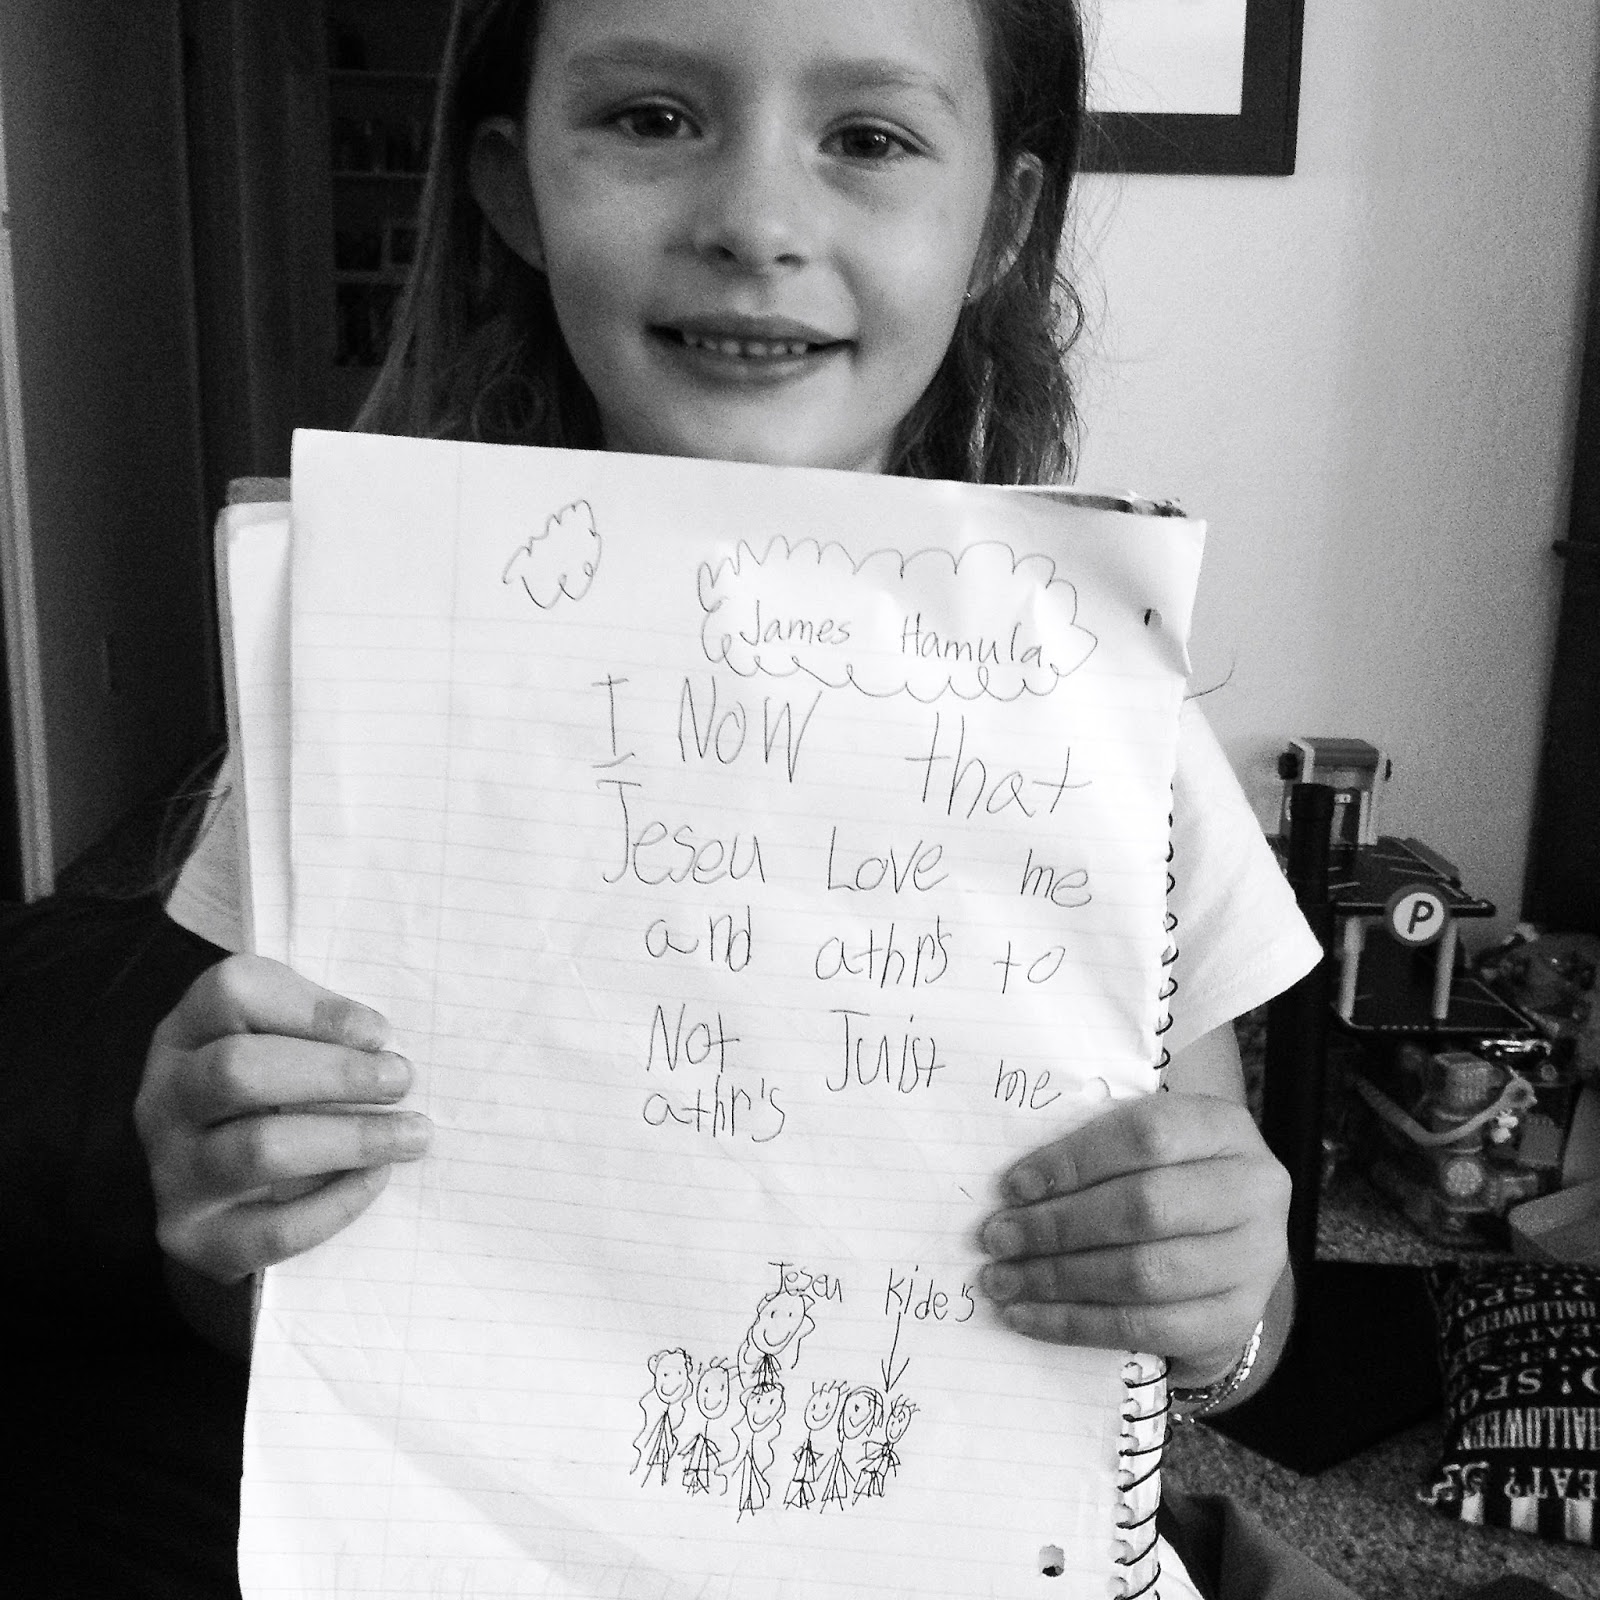 James Hamula
I Now that
Jeseu Love me
and athr's to
Not Juist me
athr's
Jeseu Kide's
P